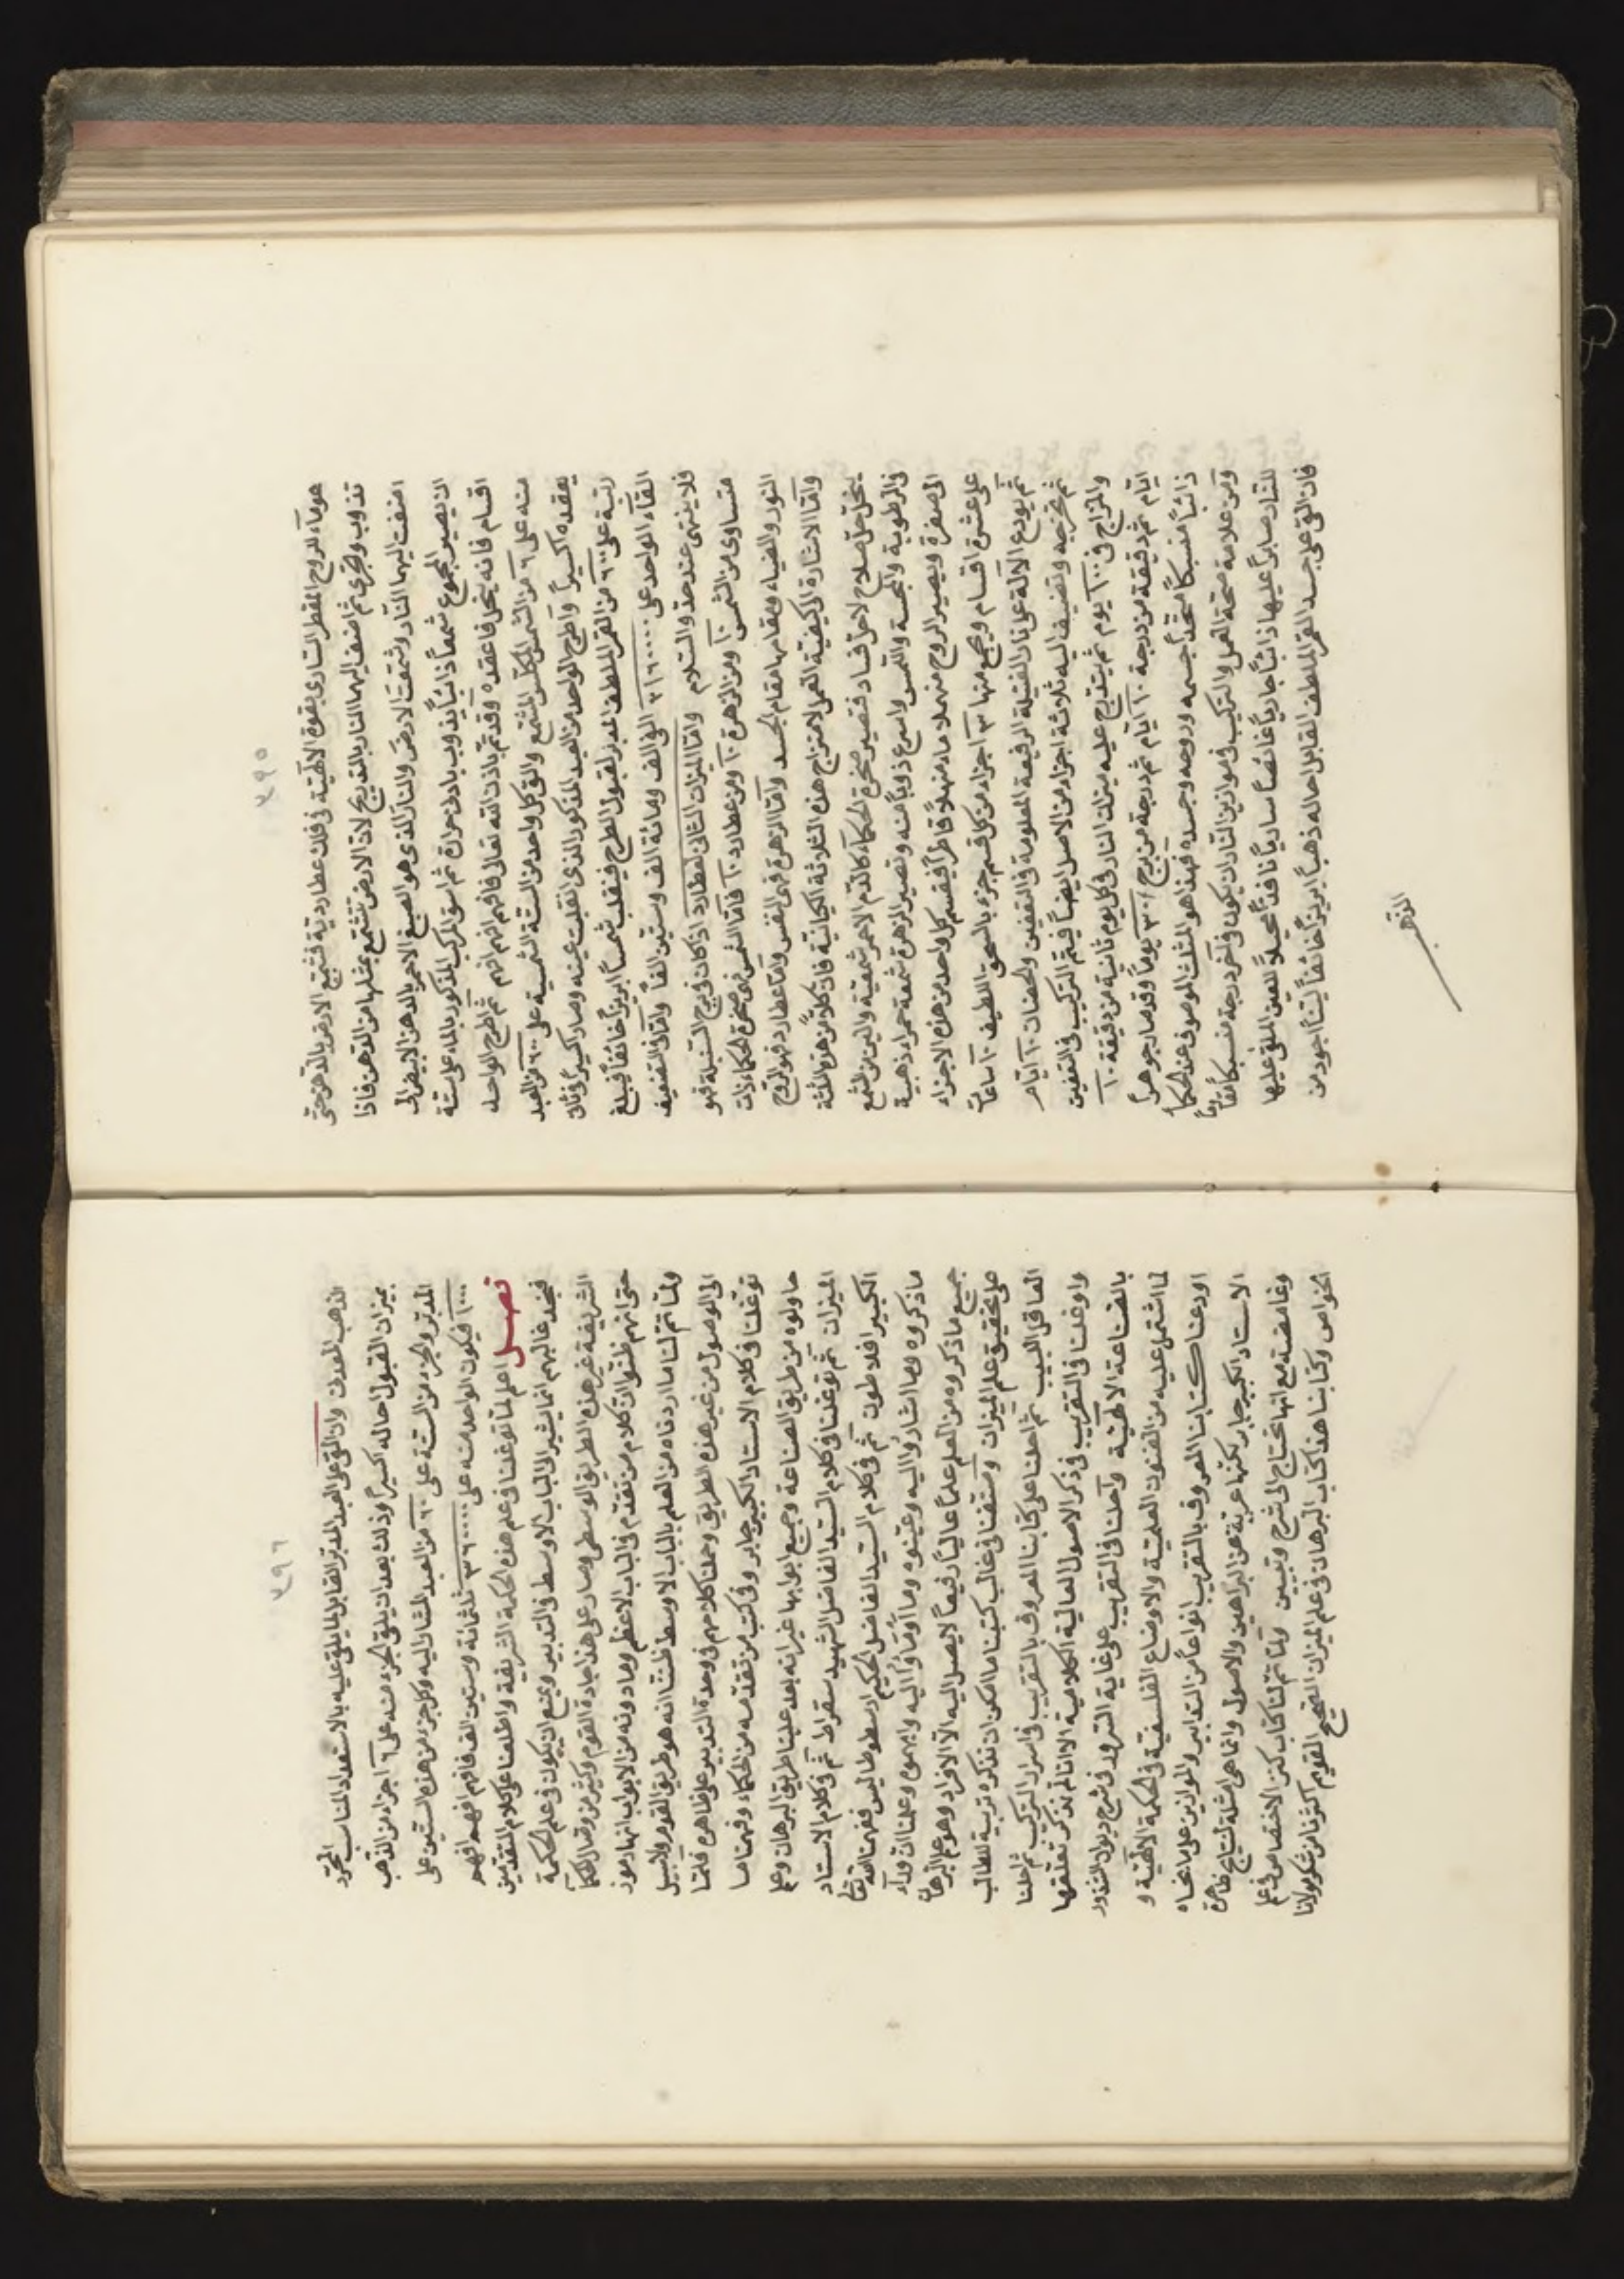 ٧٩٥
هو ماء للروح المقطر السارى بقوة الالهية فى فلك عطاردية فتشمع الارض بالدهن حتى
تذوب وتجرى ثم اضف اليها النار بالتدريج لان الارض تتشمع بمثلها من الدهن فاذا
اضفت اليها النار وشمعت الارض والنار الذى هو الصبغ الاحمر بالدهن الابيض الى
ان يصير المجموع شمعاً ذائباً يذوب بادنى حرارة ثم اسق المركب المذكور بالماء على ستة
اقسام فانه ينحل فاعقده وقد تم باذن الله تعالى فافهم افهم افهم ثم اطرح الواحد
منه على ٦ من الشمس المكلس المشمع والق كل واحد من الستة الشمسية على ٦٠ من العبد
يعقده اكسيراً واطرح الواحد من العبد المذكور الذى انقلبت عينه وصار اكسيراً فى ثان
رتبة على ٦٠٠ من القمر الملطف المدبر لقبول الطرح فينقلب شمساً ابريزاً خائفاً فيبلغ
القاء الواحد على ٢١٦٠٠٠٠ الفى الف ومائة الف وستين الفاً واما فى التضعيف
فلا ينتهى عند حد والسلام واما الميزان الثانى لعطارد اذا كان فى برج السنبلة فهو
متساوى من الشمس ١٠ ومن الزهرة ١٠ ومن عطارد ١٠ فاما الشمس فهى صخرة الحكماء ذات
النور والضياء ومقامها مقام الجسد واما الزهرة فهى النفس واما عطارد فهو الروح
واما الاشارة الى كيفية العمل لامتزاج هذه الثلاثة الكيانية فان كلاً من هذه الثلثة
ينحل حل صلاح لا حل فساد فتصير صخرة الحكماء كالدم الاحمر شمعية والين من الشمع
فى الرطوبة والمجسة واللمس واسرع ذوباً منه وتصير الزهرة شمعة حمراء ذهبية
الى صفرة ويصير الروح منهما ماء منهلاً قاطراً فيقسم كل واحد من هذه الاجزاء
على عشرة اقسام ويجمع منها ٣ اجزاء من كل قسم جزء بالسحق اللطيف ١٠ ساعات
ثم يودع الآلة على نار الفتيلة الرفيعة المعلومة فى التعفين والحضان ١٠ ايام
ثم تخرجه وتضيف اليه ثلاثة اجزاء من الاصل ايضاً فيتم التركيب فى التعفين
والمزاج فى ١٠٠ يوم ثم يتدرج عليه ميزان النار فى كل يوم ثانية من دقيقة ١٠
ايام ثم دقيقة من درجة ١٠ ايام ثم درجة من برج ٣٠ يوماً وقد صار جوهراً
ذائباً منسبكاً متحداً جسمه وروحه وجسده فهذا هو المثلث الموصوف عند الحكماء
ومن علامة صحة العمل والتركيب فى موازين النار ان يكون فى اخر درجة منسبكاً مقاوماً
للنار صابراً عليها ذائباً جارياً غائصاً سارياً نافذاً محيلاً لعين الملقى عليها
فان القى على جسد القمر الملطف القابل احاله ذهباً ابريزاً خائفاً لينا اجود من
الذهب
٧٩٦
الذهب المعدنى وان القى على العبد المدبر القابل لما يلقى عليه بالاستعداد المناسب المحرد
بميزان القبول احاله اكسيراً وذلك بعد ان يلقى الجزء منه على ٦ اجزاء من الذهب
المدبر والجزء من الستة على ٦٠ من العبد المشار اليه وكل جزء من هذه الستين على
١٠٠٠ فيكون الواحد منه على ٣٦٠٠٠٠ ثلثمائة وستين الف فافهم افهم افهم
فصل اعلم لما توغلنا فى علم هذه الحكمة الشريفة واطلعنا على كلام المتقدمين
فنجد غالبهم انما يشير الى الباب الاوسط فى التدبير ويمنع ان يكون فى علم الحكمة
الشريفة غير هذه الطريق الوسطى وصار على هذا جادة القوم وكثير من وصال الحكماء
حتى انهم ظنوا ان كلام من تقدم فى الباب الاعظم وما دونه من الابواب انها رموز
ولما تم لنا ما اردناه من العلم بالباب الاوسط ظننا انه هو طريق القوم ولا سبيل
الى الوصول من غير هذه الطريق وحملنا كلامهم فى وحدة التدبير على ظاهره فلما
توغلنا فى كلام الاستاد الكبير جابر وفى كتب من تقدمه من الحكماء وفهمنا ما
حاولوه من طريق الصناعة وجميع ابوابها غير انه بعد علينا طريق البرهان وعلم
الميزان ثم توغلنا فى كلام السيد الفاضل الشهيد سقراط ثم فى كلام الاستاد
الكبير افلاطون ثم فى كلام السيد الفاضل الحكيم ارسطوطاليس ففهمنا الله تعالى
ما ذكروه وما اشاروا اليه وعينوه وما أومأوا اليه وابهموه وعلمنا ان قدماء
جميع ما ذكروه من العلم علماً عالياً رفيعاً لا يصل اليه الا الافراد وهو علم البرهان
على تحقيق علم الميزان وصنفنا فى غالب كتبنا ما امكن ان نذكره تربية للطالب
العاقل اللبيب ثم احلنا على كتابنا المعروف بالتقريب فى اسرار التركيب ثم احلنا
واوغلنا فى التقريب فى ذكر الاصول العالية الكلامية الا انا لم نذكر تعلقها
بالصناعة الالهية واحلنا فى التقريب على غاية السرور فى شرح ديوان الشذور
لما اشتمل عليه من الفنون العلمية والاوضاع الفلسفية فى الحكمة الالهية و
اودعنا كتابنا المعروف بالتقريب انواعاً من التدابير والموازين على ما نحاه
الاستاد الكبير جابر لكنها عرية عن البراهين والاصول وانما هى امثلة لنتايج ظاهرة
وغامضة مع انها تحتاج الى شرح وتبيين ولما تم لنا كتاب كنز الاختصاص فى علم
الخواص وكتابنا هذا كتاب البرهان فى علم الميزان الصحيح القويم اكثرنا من شكر مولانا